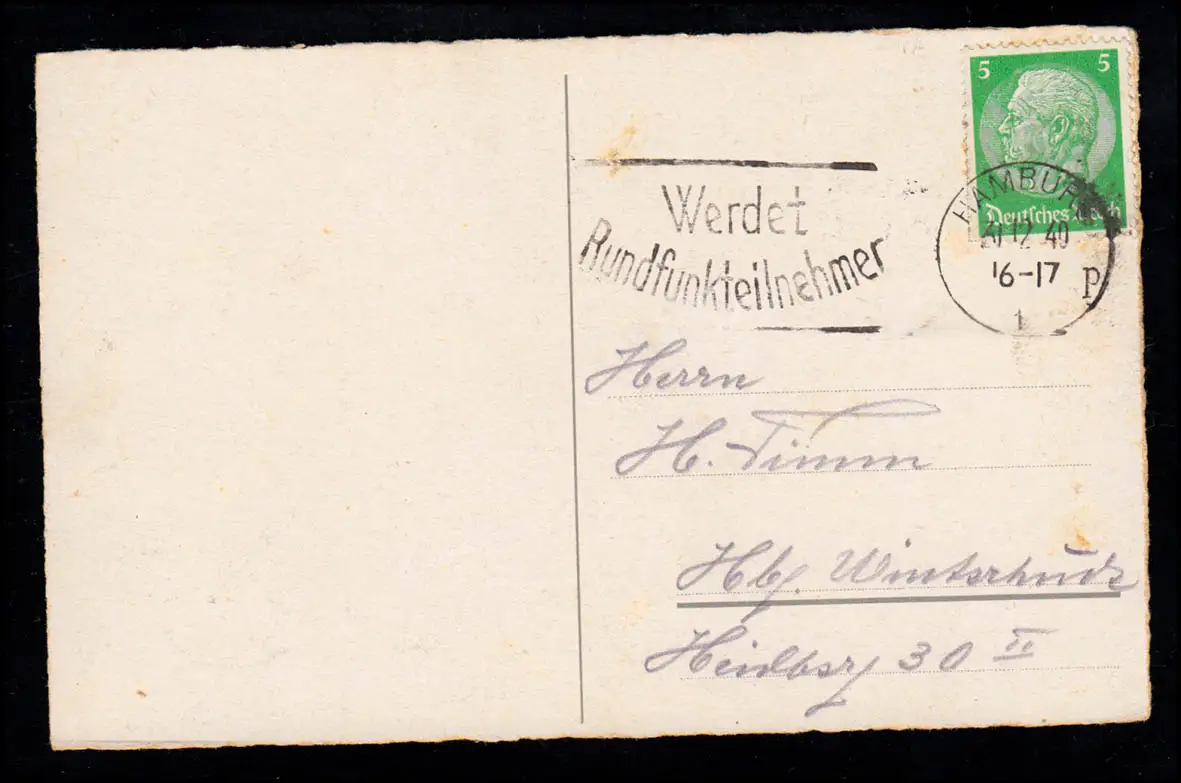 5 5
Deutsches Reich
HAMBURG
12.40
16-17
p
1
Werdet
Rundfunkteilnehmer
Herrn
H. Timm
Hbg. Winterhude
Heidberg 30 II